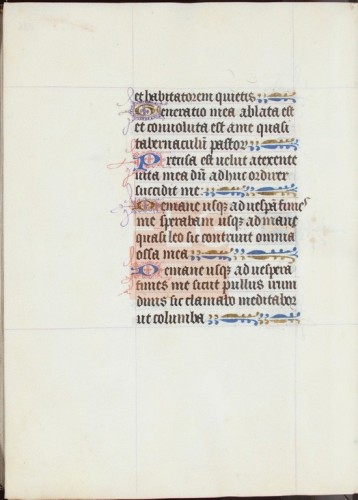 et habitatorem quietis
Generatio mea ablata est
et convoluta est ame quasi
tabernaculū pastor
Precisa est velut atexente
vita mea dū adhuc ordirer
succidit me:
De mane usq; ad vespā finies
me sperabam usq; ad mane
quasi leo sic contrivit omnia
ossa mea
De mane usq; ad vespera
finies me sicut pullus irun
dinis sic clamabo meditabor
ut columba